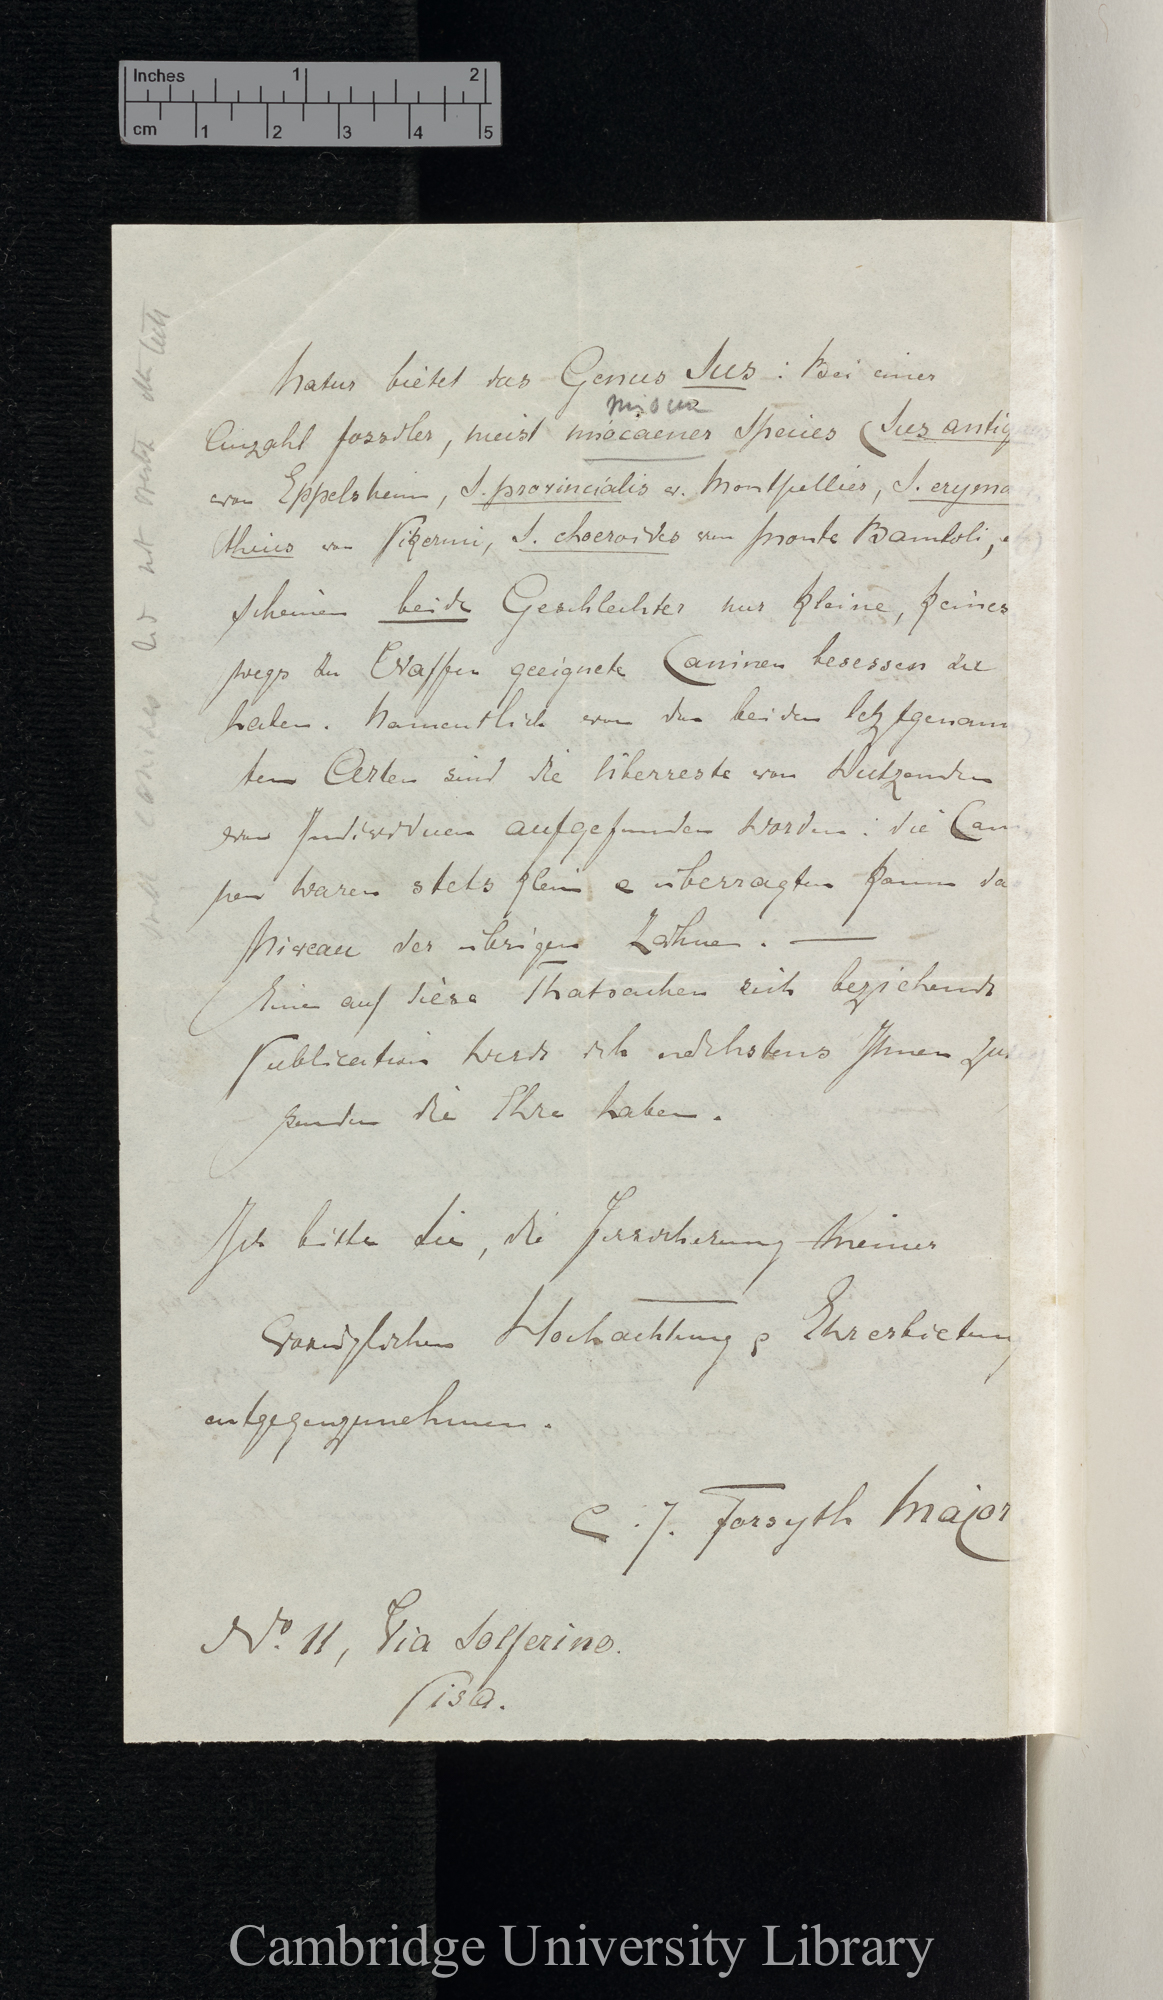 Inches 1 2
cm 1 2 3 4 5
Natur bietet das Genus Sus: Bei einer
miocen
Anzahl fossiler, meist miocaener Species (Sus antiq
von Eppelsheim, S. provincialis v. Montpellier, S. eryma
theius von Pikermi, S. choeroides von Monte Bamboli,
scheinen beide Geschlechter nur kleine, keines
wegs zu Waffen geeignete Caninen besessen zu
haben. Namentlich von den beiden letztgenann
ten Arten sind die Überreste von Dutzenden
von Individuen aufgefunden worden: die Cani
nen waren stets klein & überragten kaum da
Niveau der übrigen Zähne. —
Eine auf diese Thatsachen sich beziehende
Publication werde ich nächstens Ihnen zu
senden die Ehre haben.
Ich bitte Sie, die Versicherung meiner
vorzüglichen Hochachtung & Ehrerbietung
entgegenzunehmen.
C. J. Forsyth Major
No. 11, Via Solferino.
Pisa.
canines did not other teeth
Cambridge University Library